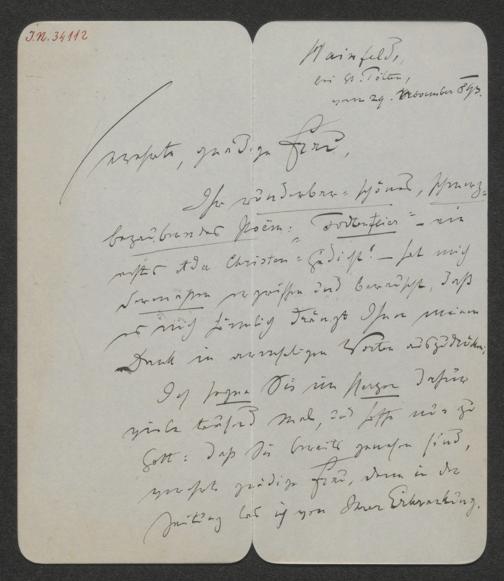 J.N. 34112
Wainfeld,
bei St. Pölten,
vom 29. November 893.
verehrte, gnädige Frau,
Ihr wunderbar-schönes, schmerz-
bezauberndes Poëm: "Todtenfeier" – ein
echtes "Ada Christen"-Gedicht! – hat mich
dermassen ergriffen und berauscht, daß
es mich förmlich drängt Ihnen meinen
Dank in armseligen Worten auszudrücken.
Ich segne Sie im Herzen dafür
viele tausend mal, und hoffe nur zu
Gott: daß Sie bereits genesen sind,
verehrte gnädige Frau, denn in der
Zeitung las ich von Ihrer Erkrankung.